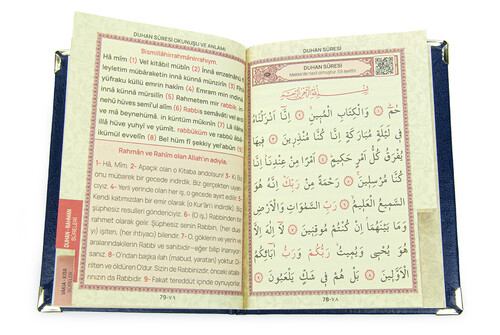 DUHAN SÛRESİ OKUNUŞU VE ANLAMI
Bismillâhirrahmânirrahıym.
Hâ mîm (1) Vel kitâbil mübîn (2) İnnâ enzelnâhü
leyletim mübâraketin innâ künnâ münzirîn (3) Fîhâ
yüfraku küllü emrin hakîm (4) Emram min
innâ künnâ mürsilîn (5) Rahmetem mir rabbik, in
nehû hüves semî'ul alîm (6) Rabbis semâvâti vel
ve mâ beynehümâ, in küntüm mûkınîn (7) Lâ ilâhe
illâ hüve yuhyî ve yümît, rabbüküm ve rabbü
ikümül evvelîn (8) Bel hüm fî şekkiy yel'abûn (9)
Rahman ve Rahîm olan Allah'ın adıyla.
1- Hâ, Mîm. 2- Apaçık olan o Kitaba andolsun! 3- Ki Biz
onu mübarek bir gecede indirdik. Biz gerçekten uyarı
4- Yerli yerinde olan her iş, o gecede ayırt edilir. 5-
Kendi katımızdan bir emir olarak (o Kur'ân'ı indirdik). Biz
şüphesiz resulleri göndericiyiz. 6- (O iş,) Rabbinden bir
rahmet olarak gelir. Şüphesiz senin Rabbin, (her şeyi)
işiten, (her ihtiyacı) bilendir. 7- O, göklerin ve yerin ve
aralarındakilerin Rabbi ve sahibidir–eğer bilip inanıyor
sanız. 8- O'ndan başka ilah (mabud, yaratan) yoktur. Di
rilten ve öldüren O'dur. Sizin de Rabbinizdir, önceki atala
rınızın da Rabbidir. 9- Fakat tereddüt içinde oynuyorlar.
DUHAN - RAHMAN
SÛRELERİ
79-٧٩
DUHAN SÛRESİ
DUHAN SÛRESİ
Mekke'de nazil olmuştur. 59 ayettir.
بِسْمِ اللّٰهِ الرَّحْمٰنِ الرَّحِيمِ
حٰمٓ ﴿١﴾ وَالْكِتَابِ الْمُبِينِ ﴿٢﴾ اِنَّٓا اَنْزَلْنَاهُ
فِي لَيْلَةٍ مُبَارَكَةٍ اِنَّا كُنَّا مُنْذِرِينَ ﴿٣﴾ فِيهَا
يُفْرَقُ كُلُّ اَمْرٍ حَكِيمٍ ﴿٤﴾ اَمْرًا مِنْ عِنْدِنَا اِنَّا
كُنَّا مُرْسِلِينَ ﴿٥﴾ رَحْمَةً مِنْ رَبِّكَ اِنَّهُ هُوَ
السَّمِيعُ الْعَلِيمُ ﴿٦﴾ رَبِّ السَّمٰوَاتِ وَالْاَرْضِ
وَمَا بَيْنَهُمَا اِنْ كُنْتُمْ مُوقِنِينَ ﴿٧﴾ لَٓا اِلٰهَ اِلَّا
هُوَ يُحْيِي وَيُمِيتُ رَبُّكُمْ وَرَبُّ اٰبَٓائِكُمُ
الْاَوَّلِينَ ﴿٨﴾ بَلْ هُمْ فِي شَكٍّ يَلْعَبُونَ ﴿٩﴾
78-٧٨